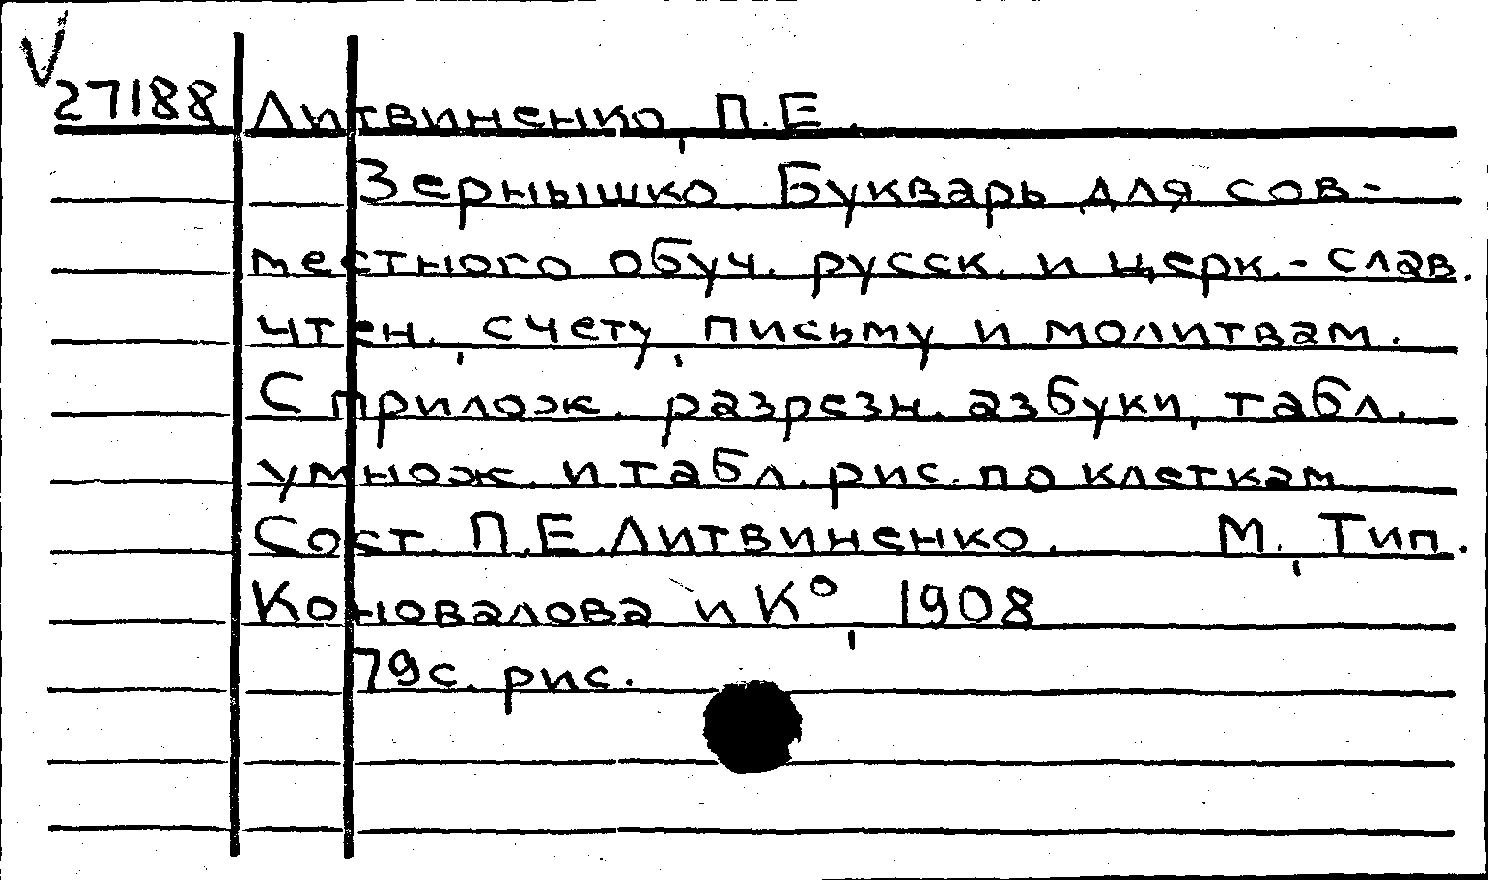 27188 Литвиненко, П.Е.
Зернышко. Букварь для сов-
местного обуч. русск. и церк.-слав.
чтен., счету, письму и молитвам.
С прилож. разрезн. азбуки, табл.
умнож. и табл. рис. по клеткам
Сост. П.Е.Литвиненко. М., Тип.
Коновалова и К°, 1908
79с. рис.